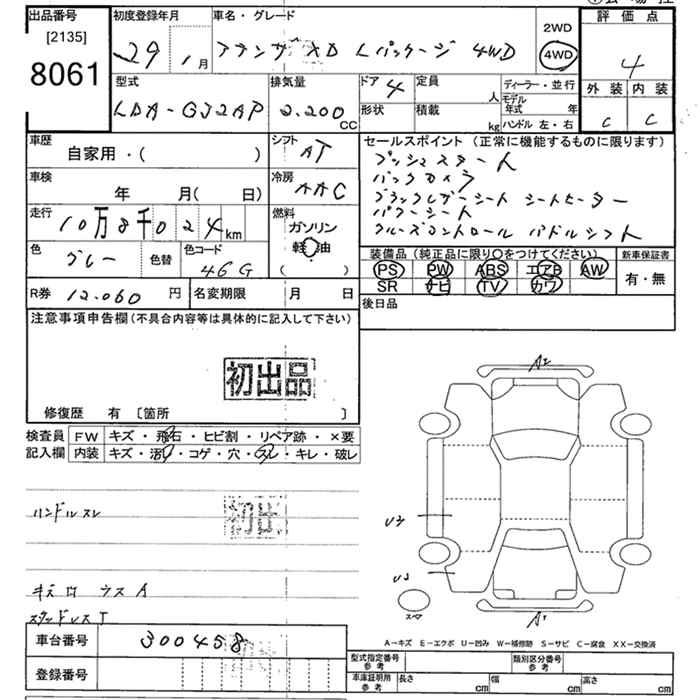 出品番号
[2135]
8061
初度登録年月
29 1月
車名・グレード
アテンザ XD Lパッケージ 4WD
2WD
4WD
評価点
4
外装 内装
C C
型式
LDA-GJ2AP
排気量
2.200 CC
ドア 4
形状
定員 人
積載 kg
ディーラー・並行
モデル年式 年
ハンドル 左・右
車歴
自家用・( )
シフト
AT
車検
年 月( 日)
冷房
AAC
走行
10万8千024km
燃料
ガソリン
軽油
( )
色
グレー
色替
色コード
46G
セールスポイント (正常に機能するものに限ります)
プッシュスタート
バックカメラ
ブラックレザーシート シートヒーター
パワーシート
クルーズコントロール パドルシフト
装備品(純正品に限り〇をつけてください)
PS PW ABS エアB AW
SR ナビ TV カワ
新車保証書
有・無
R券 12.060 円
名変期限 月 日
後日品
注意事項申告欄(不具合内容等は具体的に記入して下さい)
初出品
修復歴 有 〔箇所 〕
検査員
記入欄
FW キズ・飛石・ヒビ割・リペア跡・×要
内装 キズ・汚れ・コゲ・穴・スレ・キレ・破レ
ハンドルスレ
初出
キズ ウスA
スタッドレス
車台番号 300458
登録番号
スペア
A-キズ E-エクボ U-凹み W-補修跡 S-サビ C-腐食 XX-交換済
型式指定番号
参考
類別区分番号
参考
車庫証明用
参考
長さ cm
幅 cm
高さ cm